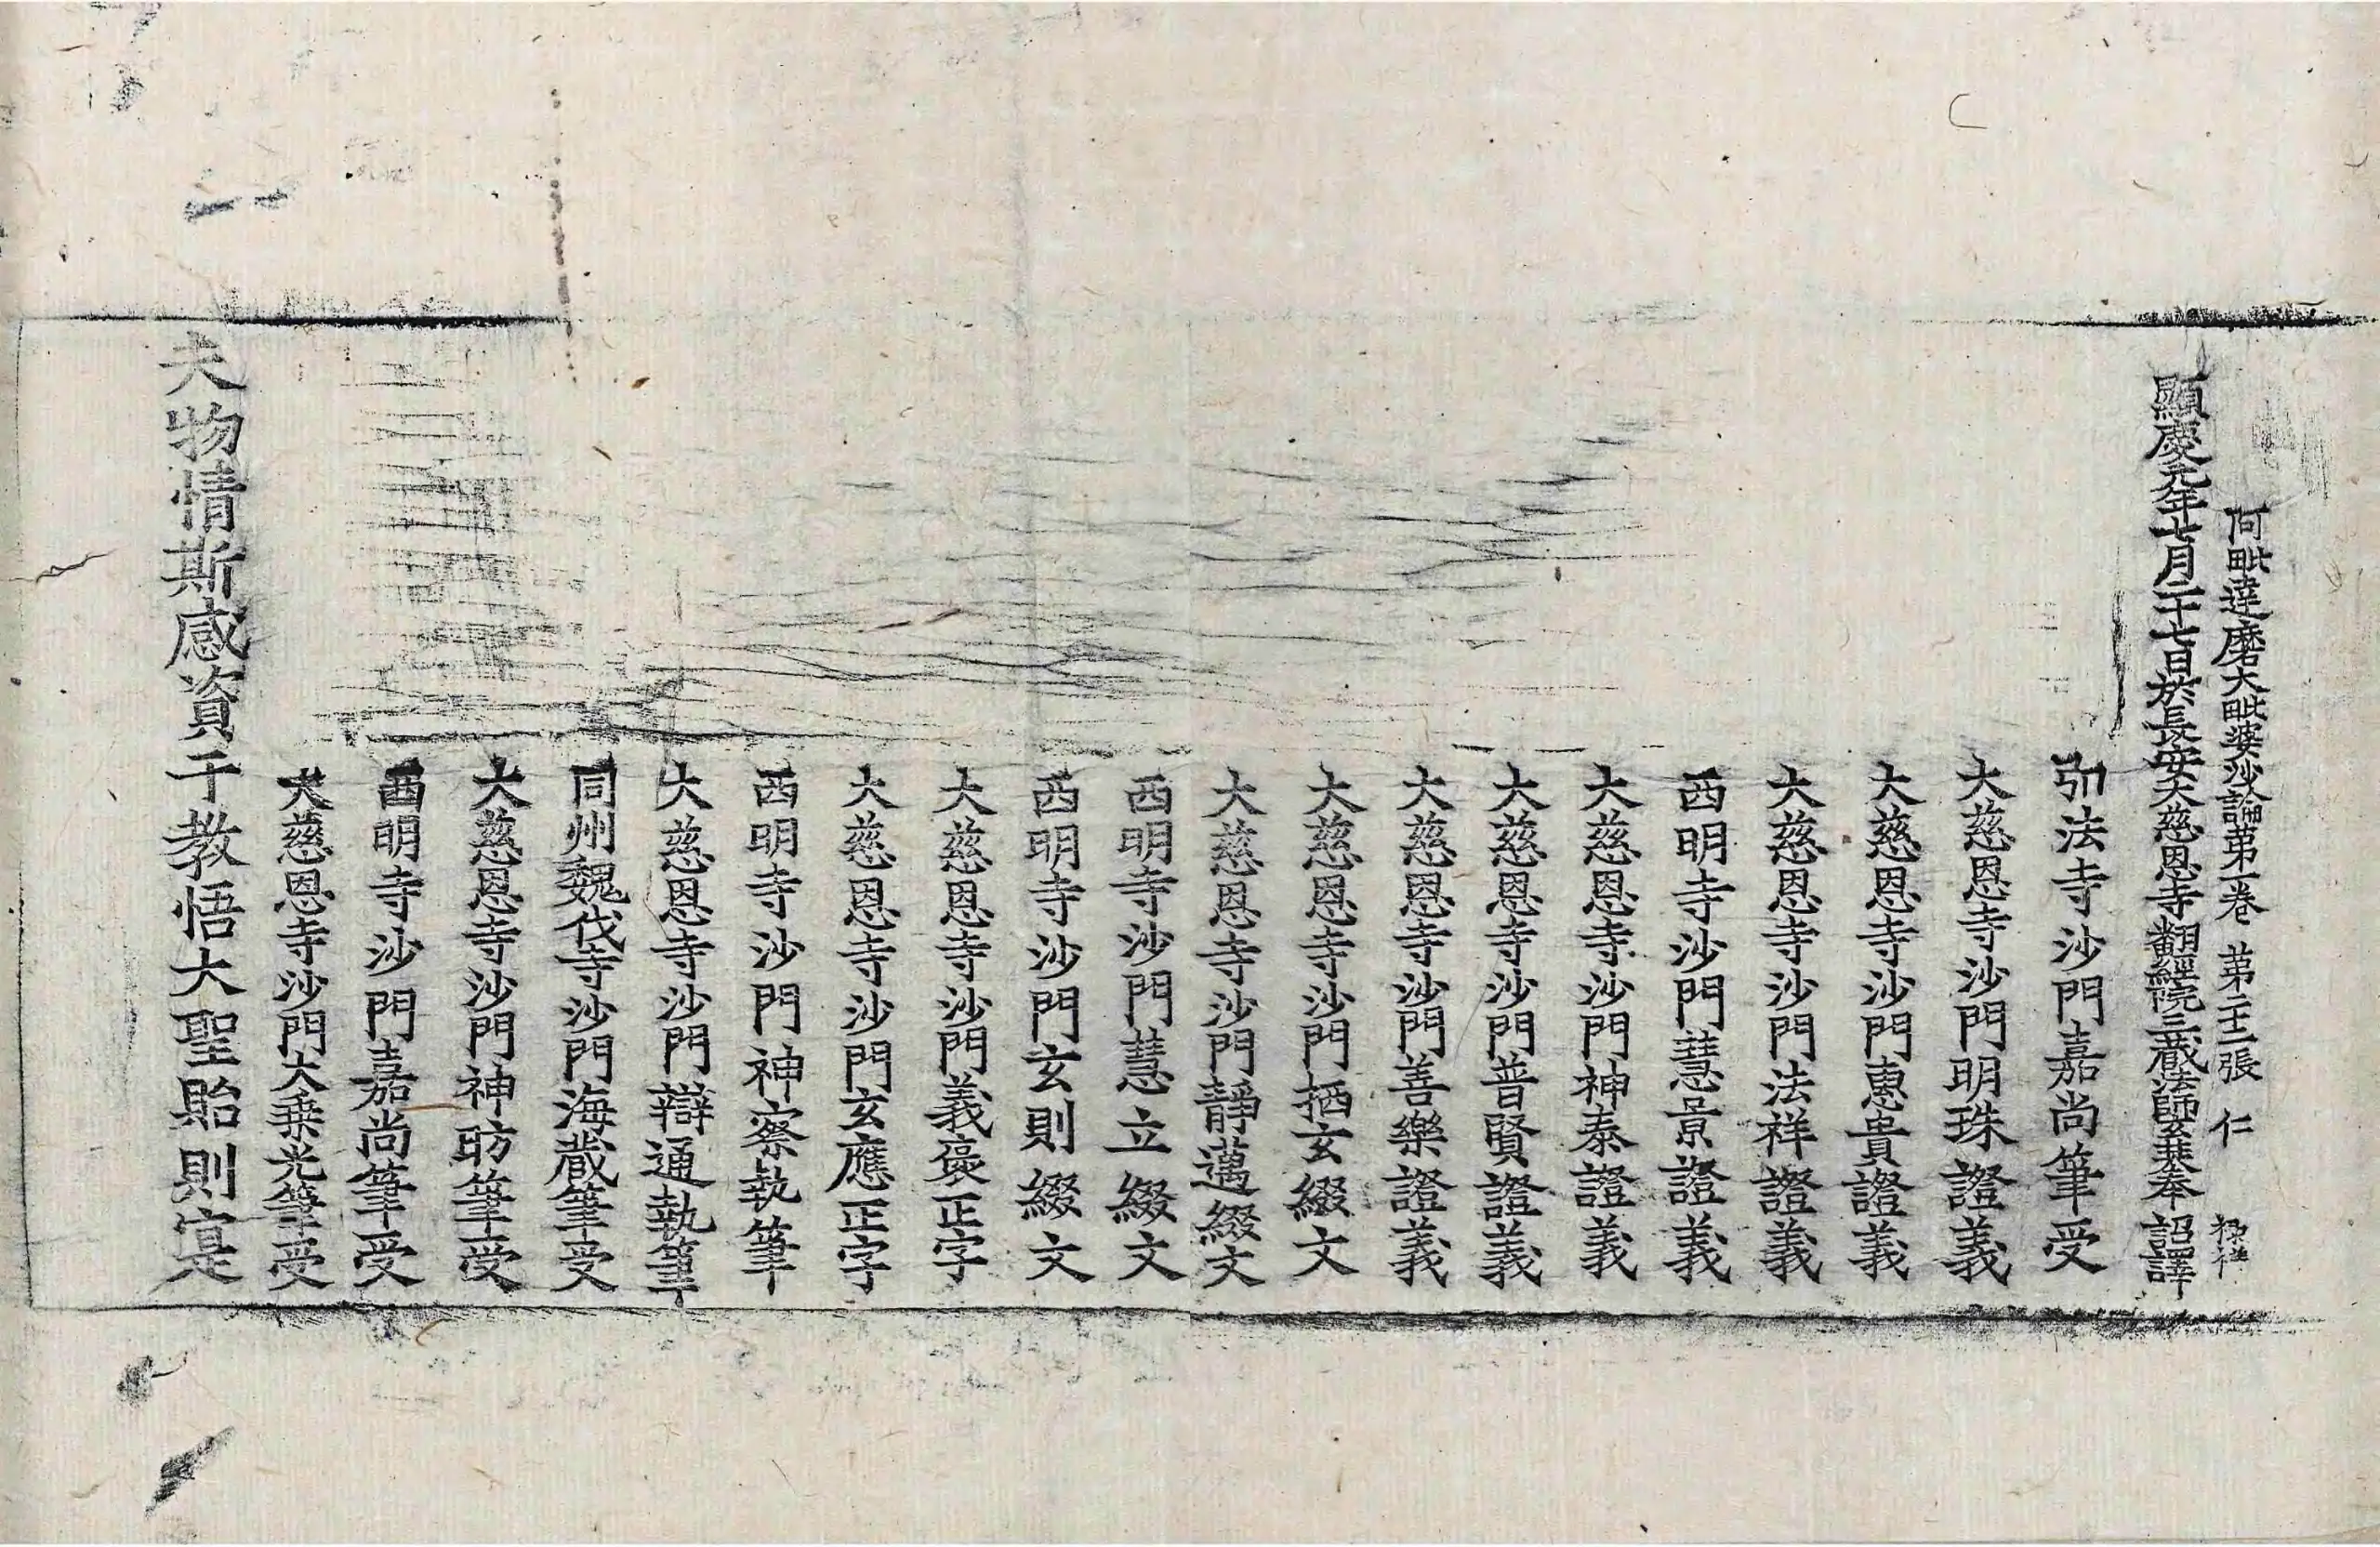 阿毗達磨大毗婆沙論第一卷 第二十二張 仁 祿祥
顯慶元年七月二十七日於長安大慈恩寺翻經院三藏法師玄奘奉 詔譯
弘法寺沙門嘉尚筆受
大慈恩寺沙門明珠證義
大慈恩寺沙門惠貴證義
大慈恩寺沙門法祥證義
西明寺沙門慧景證義
大慈恩寺沙門神泰證義
大慈恩寺沙門普賢證義
大慈恩寺沙門善樂證義
大慈恩寺沙門栖玄綴文
大慈恩寺沙門靜邁綴文
西明寺沙門慧立綴文
西明寺沙門玄則綴文
大慈恩寺沙門義褒正字
大慈恩寺沙門玄應正字
西明寺沙門神察執筆
大慈恩寺沙門辯通執筆
同州魏伐寺沙門海藏筆受
大慈恩寺沙門神昉筆受
西明寺沙門嘉尚筆受
大慈恩寺沙門大乗光筆受
夫物情斯感資于教悟大聖貽則寔